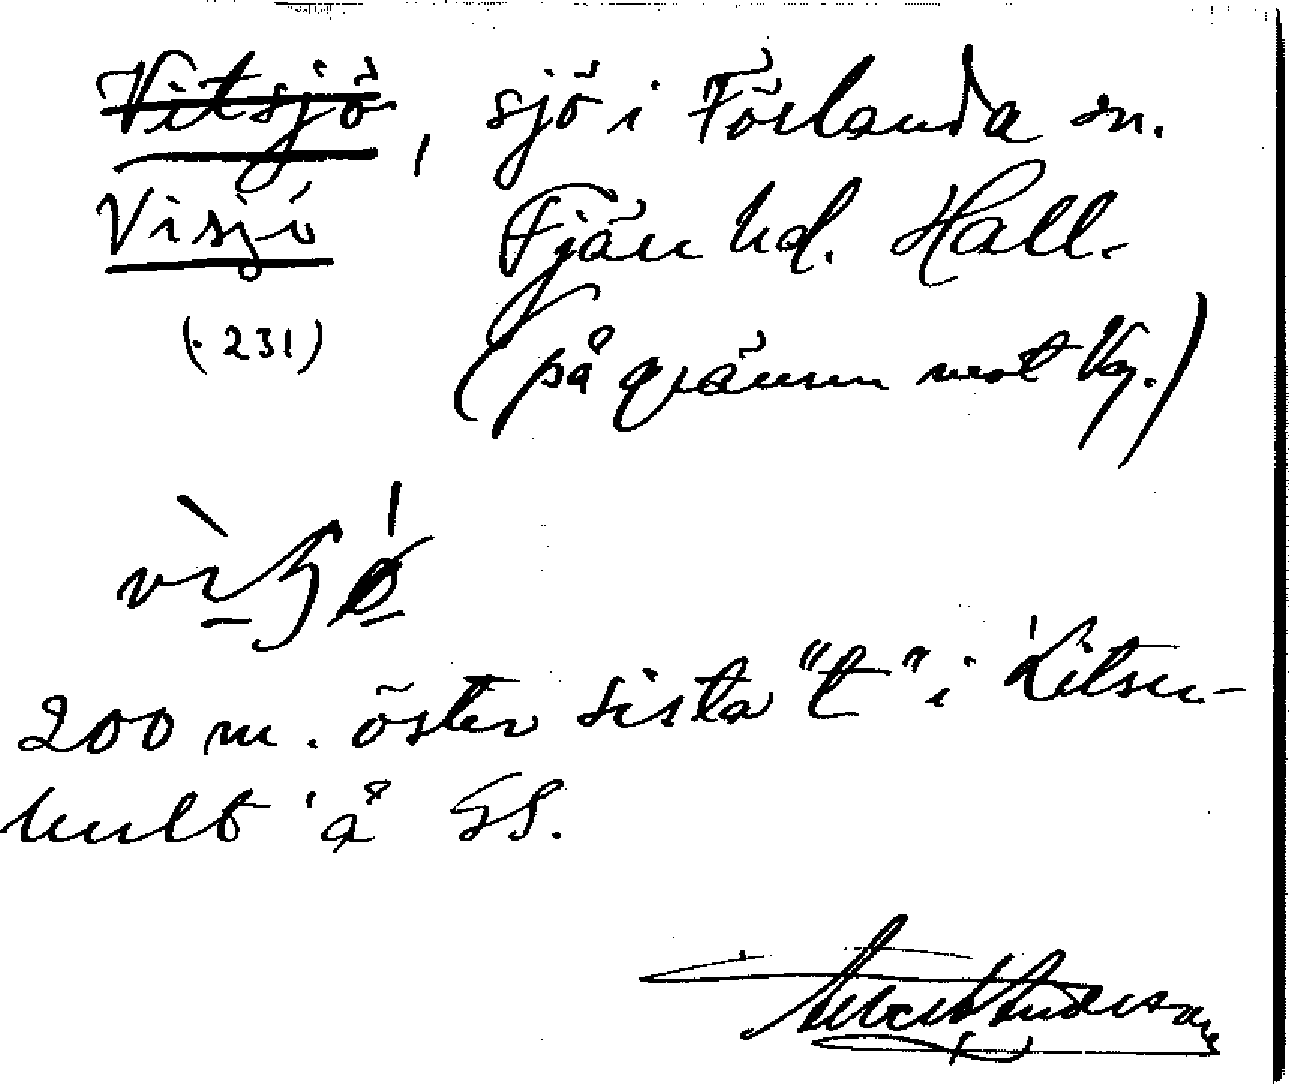 Vitsjö, sjö i Förlanda sn.
Visjö Fjäre hd. Hall.
(· 231) (på gränsen mot Vg.)
200 m. öster sista "t" i
hult' å GS.
Albert Anderson